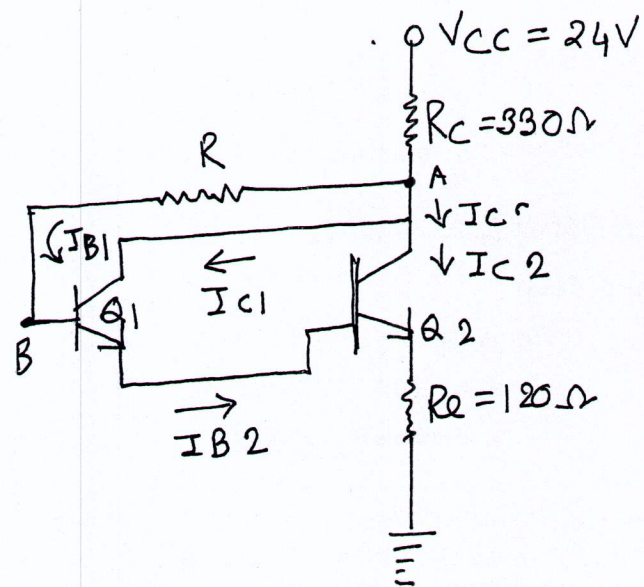 VCC = 24V
RC = 330Ω
R
A
IC
IB1
IC2
IC1
Q1
B
Q2
IB2
Re = 120Ω